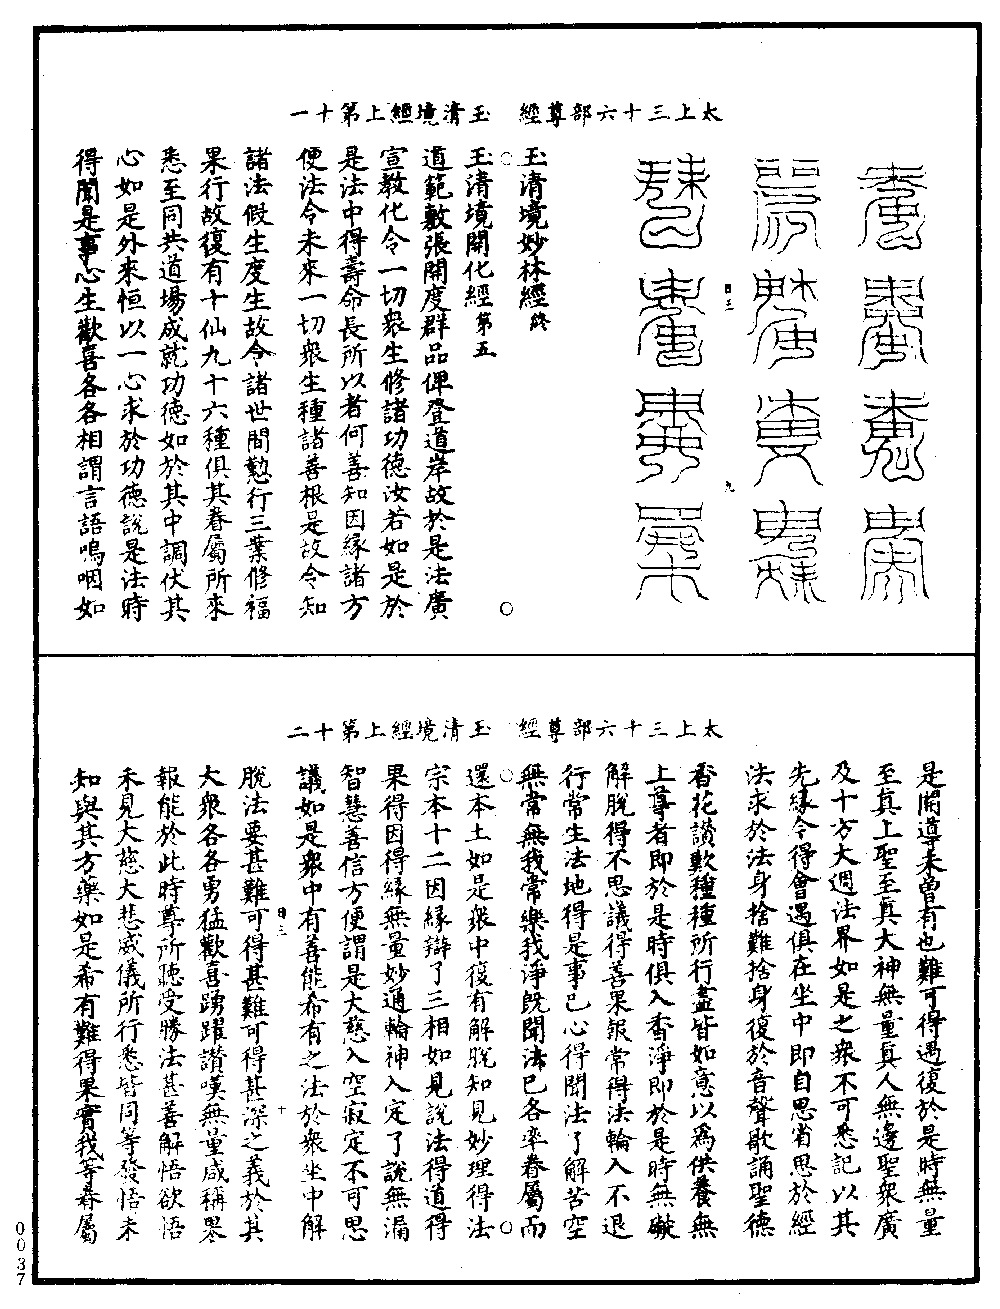 太上三十六部尊經　玉清境經上第十一
日三
九
玉清境妙林經終
玉清境開化經第五
道範敷張開度群品俾登道岸故於是法廣
宣教化令一切衆生修諸功德汝若如是於
是法中得壽命長所以者何善知因緣諸方
便法令未來一切衆生種諸善根是故令知
諸法假生度生故令諸世間懃行三業修福
果行故復有十仙九十六種俱其眷屬所來
悉至同共道場成就功德如於其中調伏其
心如是外來恒以一心求於功德說是法時
得聞是事心生歡喜各各相謂言語嗚咽如
太上三十六部尊經　玉清境經上第十二
是開導未曾有也難可得遇復於是時無量
至真上聖至真大神無量真人無邊聖衆廣
及十方大週法界如是之衆不可悉記以其
先緣令得會遇俱在坐中即自思省思於經
法求於法身捨難捨身復於音聲歌誦聖德
香花讚歎種種所行盡皆如意以爲供養無
上尊者即於是時俱入香淨即於是時無礙
解脫得不思議得善果報常得法輪入不退
行常生法地得是事已心得聞法了解苦空
無常無我常樂我淨既聞法已各率眷屬而
還本土如是衆中復有解脫知見妙理得法
宗本十二因緣辯了三相如見說法得道得
果得因得緣無量妙通輪神入定了說無漏
智慧善信方便謂是大慈入空寂定不可思
議如是衆中有善能希有之法於衆坐中解
日三
十
脫法要甚難可得甚難可得甚深之義於其
大衆各各勇猛歡喜踴躍讚嘆無量咸稱罕
報能於此時尊所聽受勝法甚善解悟欲悟
未見大慈大悲威儀所行悉皆同等發悟未
知與其方藥如是希有難得果實我等眷屬
0037